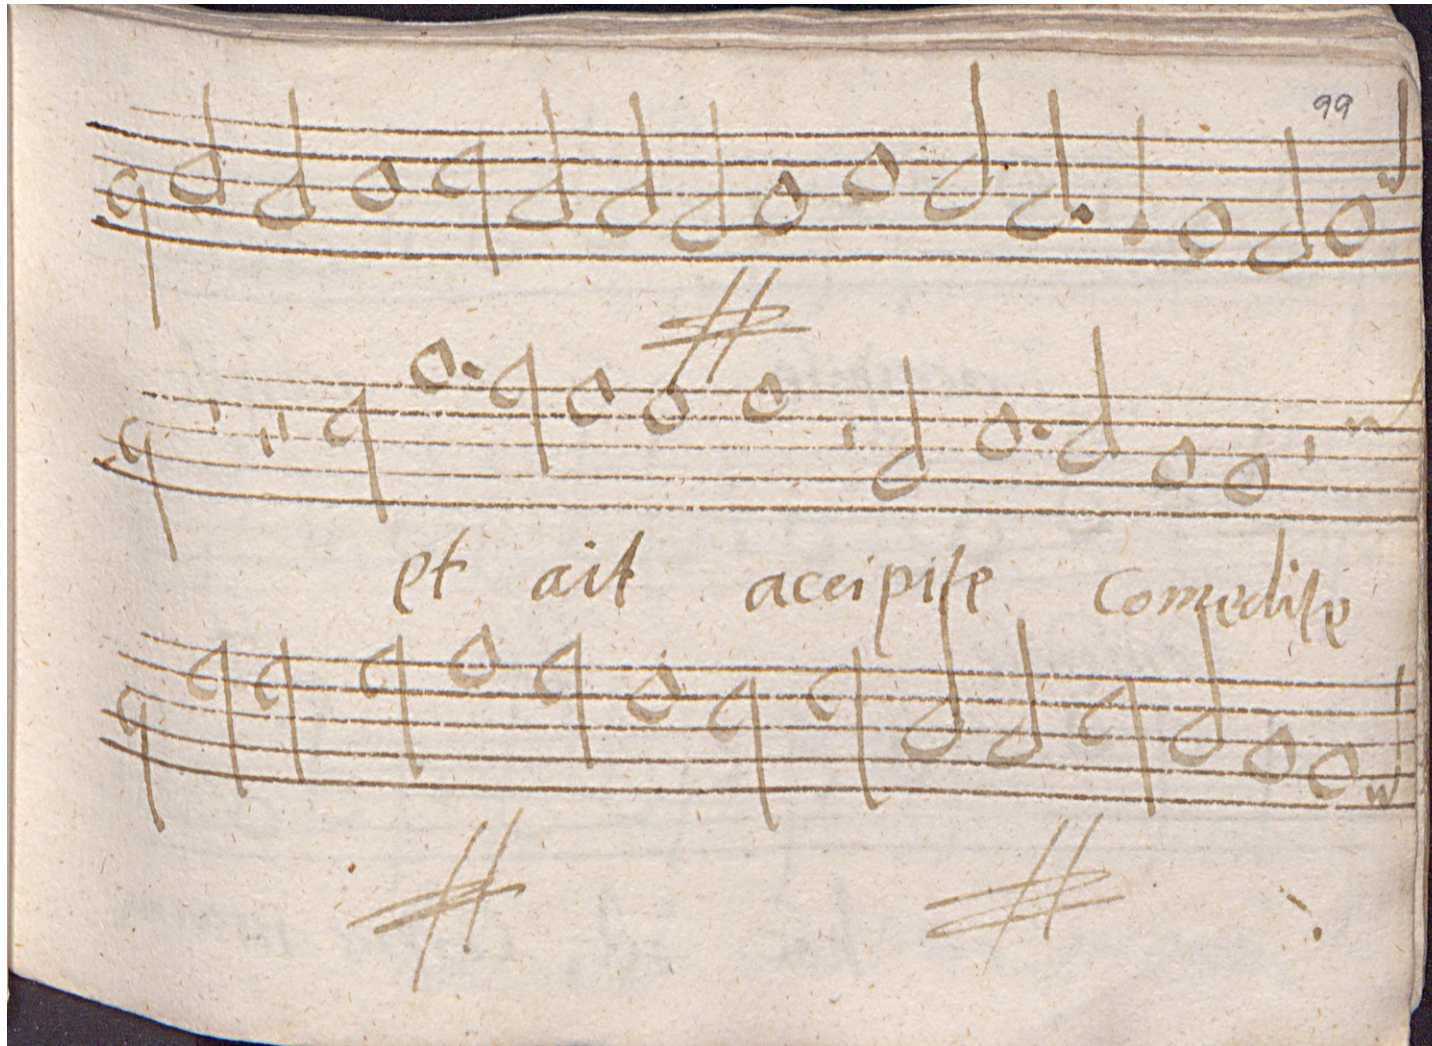 99
et ait accipite Comedite